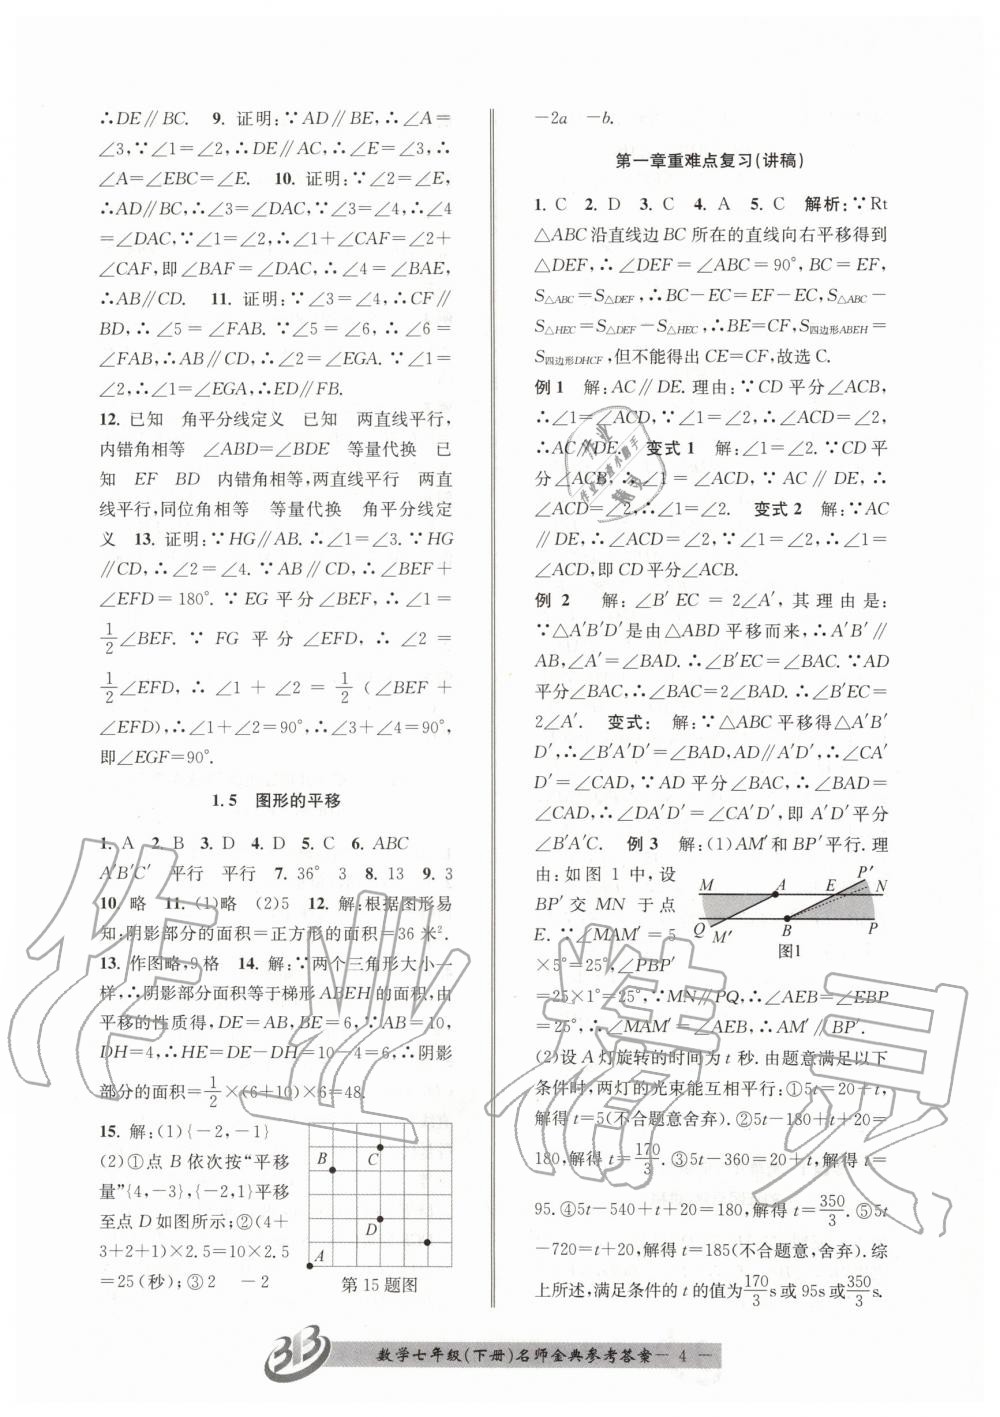 ∴DE∥BC. 9. 证明:∵AD∥BE,∴∠A=
∠3,∵∠1=∠2,∴DE∥AC,∴∠E=∠3,∴
∠A=∠EBC=∠E. 10. 证明:∵∠2=∠E,
∴AD∥BC,∴∠3=∠DAC,∵∠3=∠4,∴∠4
=∠DAC,∵∠1=∠2,∴∠1+∠CAF=∠2+
∠CAF,即∠BAF=∠DAC,∴∠4=∠BAE,
∴AB∥CD. 11. 证明:∵∠3=∠4,∴CF∥
BD,∴∠5=∠FAB. ∵∠5=∠6,∴∠6=
∠FAB,∴AB∥CD,∴∠2=∠EGA. ∵∠1=
∠2,∴∠1=∠EGA,∴ED∥FB.
12. 已知 角平分线定义 已知 两直线平行,
内错角相等 ∠ABD=∠BDE 等量代换 已
知 EF BD 内错角相等,两直线平行 两直
线平行,同位角相等 等量代换 角平分线定
义 13. 证明:∵HG∥AB. ∴∠1=∠3. ∵HG
∥CD,∴∠2=∠4. ∵AB∥CD,∴∠BEF+
∠EFD=180°. ∵EG平分∠BEF,∴∠1=
1/2∠BEF. ∵FG平分∠EFD,∴∠2=
1/2∠EFD,∴∠1+∠2=1/2(∠BEF+
∠EFD),∴∠1+∠2=90°,∴∠3+∠4=90°,
即∠EGF=90°.
1.5 图形的平移
1. A 2. B 3. D 4. D 5. C 6. ABC
A′B′C′ 平行 平行 7. 36° 3 8. 13 9. 3
10. 略 11. (1)略 (2)5 12. 解:根据图形易
知:阴影部分的面积=正方形的面积=36 米².
13. 作图略,9格 14. 解:∵两个三角形大小一
样,∴阴影部分面积等于梯形ABEH的面积,由
平移的性质得,DE=AB,BE=6,∵AB=10,
DH=4,∴HE=DE-DH=10-4=6,∴阴影
部分的面积=1/2×(6+10)×6=48.
15. 解:(1){-2,-1}
(2)①点B依次按“平移
量”{4,-3},{-2,1}平移
至点D如图所示;②(4+
3+2+1)×2.5=10×2.5
=25(秒);③2 -2
B C
D
A
第15题图
-2a -b.
第一章重难点复习(讲稿)
1. C 2. D 3. C 4. A 5. C 解析:∵Rt
△ABC沿直线边BC所在的直线向右平移得到
△DEF,∴∠DEF=∠ABC=90°,BC=EF,
S△ABC=S△DEF,∴BC-EC=EF-EC,S△ABC-
S△HEC=S△DEF-S△HEC,∴BE=CF,S四边形ABEH=
S四边形DHCF,但不能得出CE=CF,故选C.
例1 解:AC∥DE. 理由:∵CD平分∠ACB,
∴∠1=∠ACD,∵∠1=∠2,∴∠ACD=∠2,
∴AC∥DE. 变式1 解:∠1=∠2. ∵CD平
分∠ACB,∴∠1=∠ACD,∵AC∥DE,∴
∠ACD=∠2,∴∠1=∠2. 变式2 解:∵AC
∥DE,∴∠ACD=∠2,∵∠1=∠2,∴∠1=
∠ACD,即CD平分∠ACB.
例2 解:∠B′EC=2∠A′,其理由是:
∵△A′B′D′是由△ABD平移而来,∴A′B′∥
AB,∠A′=∠BAD. ∴∠B′EC=∠BAC. ∵AD
平分∠BAC,∴∠BAC=2∠BAD. ∴∠B′EC=
2∠A′. 变式: 解:∵△ABC平移得△A′B′
D′,∴∠B′A′D′=∠BAD,AD∥A′D′,∴∠CA′
D′=∠CAD,∵AD平分∠BAC,∴∠BAD=
∠CAD,∴∠DA′D′=∠CA′D′,即A′D′平分
∠B′A′C. 例3 解:(1)AM′和BP′平行. 理
由:如图1中,设
BP′交MN于点
E. ∵∠MAM′=5
×5°=25°,∠PBP′
M A E P′ N
Q M′ B P
图1
=25×1°=25°,∵MN∥PQ,∴∠AEB=∠EBP
=25°,∴∠MAM′=∠AEB,∴AM′∥BP′.
(2)设A灯旋转的时间为t秒. 由题意满足以下
条件时,两灯的光束能互相平行:①5t=20+t,
解得t=5(不合题意舍弃). ②5t-180+20+t=
180,解得t=170/3. ③5t-360=20+t,解得t=
95. ④5t-540+t+20=180,解得t=350/3. ⑤5t
-720=t+20,解得t=185(不合题意,舍弃). 综
上所述,满足条件的t的值为170/3s或95s或350/3s.
数学七年级(下册)名师金典参考答案— 4 —
作业精灵